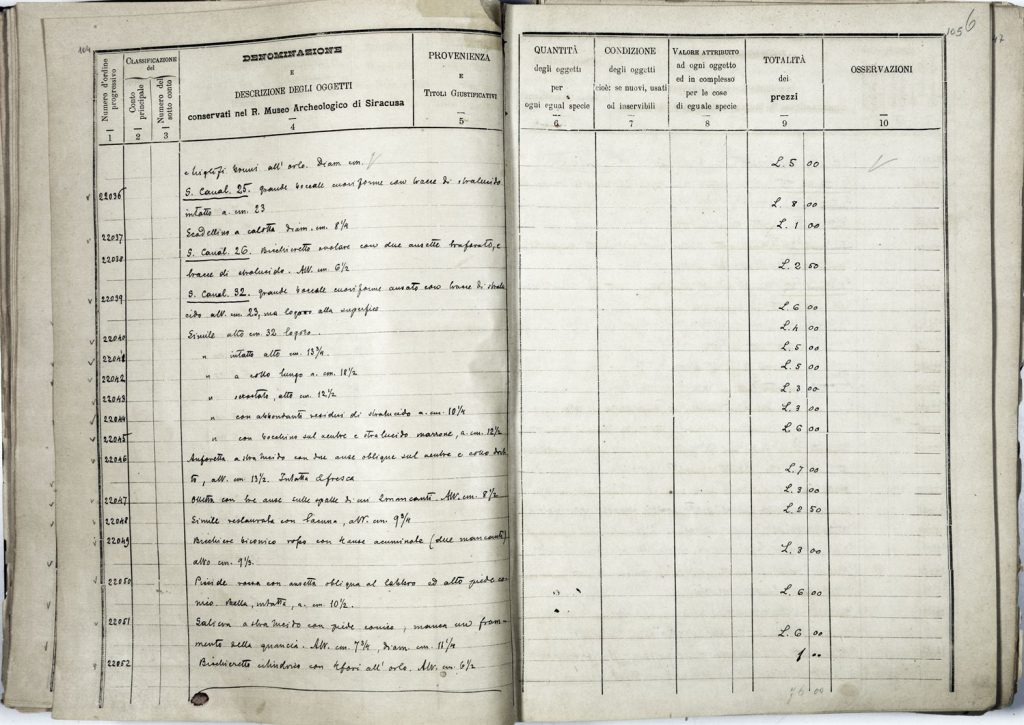 104
Numero d'ordine progressivo
1
CLASSIFICAZIONE del
Conto principale
2
Numero del sotto conto
3
DENOMINAZIONE
E
DESCRIZIONE DEGLI OGGETTI
conservati nel R. Museo Archeologico di Siracusa
4
PROVENIENZA
E
TITOLI GIUSTIFICATIVI
5
all' orlo. Diam cm.
22036 S. Canal. 25. Grande boccale cuoriforme con tracce di stralucido
intatto a. cm. 23
22037 Scodellino a calotta diam. cm. 8 1/4
22038 S. Canal. 26. Bicchieretto ovolare con due ansette traforate, e
tracce di stralucido. Alt. cm 6 1/2
22039 S. Canal. 32. Grande boccale cuoriforme ansato con tracce di stralu
cido alt. cm. 23, ma logoro alla superficie
22040 Simile alto cm. 32 logoro.
22041 " intatto alto cm. 13 3/4.
22042 " a collo lungo a. cm. 18 1/2
22043 " alto cm. 12 1/2
22044 " con abbondanti residui di stralucido a. cm. 10 1/4
22045 " con bocchino sul ventre e stralucido marrone, a. cm. 12 1/2
22046 Anforetta a stralucido con due anse oblique sul ventre e collo drit
to, alt. cm. 13 1/2. Intatta e fresca
22047 Olletta con tre anse sulle spalle di cui 2 mancanti. Alt. cm. 8 1/2
22048 Simile restaurata con lacuna, alt. cm. 9 3/4
22049 Bicchiere biconico rosso con 4 anse acuminate (due mancanti)
alto cm. 9 1/3.
22050 Pisside rossa con ansetta obliqua al labbro ed alto piede co-
nico. Bella, intatta, a. cm. 10 1/2.
22051 a stralucido con piede conico, manca un fram-
mento della guancia. Alt. cm. 7 3/4, diam. cm. 11 1/4
22052 Bicchieretto cilindrico con 4 fori all' orlo. Alt. cm. 6 1/2
105
6
47
QUANTITÀ
degli oggetti
per
ogni egual specie
6
CONDIZIONE
degli oggetti
cioè: se nuovi, usati
od inservibili
7
VALORE ATTRIBUITO
ad ogni oggetto
ed in complesso
per le cose
di eguale specie
8
TOTALITÀ
dei
prezzi
9
OSSERVAZIONI
10
L. 5 00
L. 8 00
L. 1 00
L. 2 50
L. 6 00
L. 4 00
L. 5 00
L. 5 00
L. 3 00
L. 3 00
L. 6 00
L. 7 00
L. 3 00
L. 2 50
L. 3 00
L. 6 00
L. 6 00
1 00
76 00